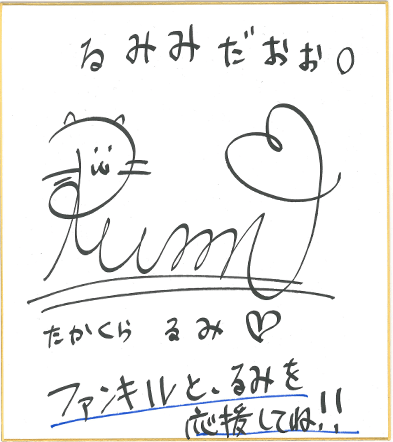 るみみだぉぉ。
Rumi
たかくら るみ♡
ファンキルと、るみを
応援してね!!